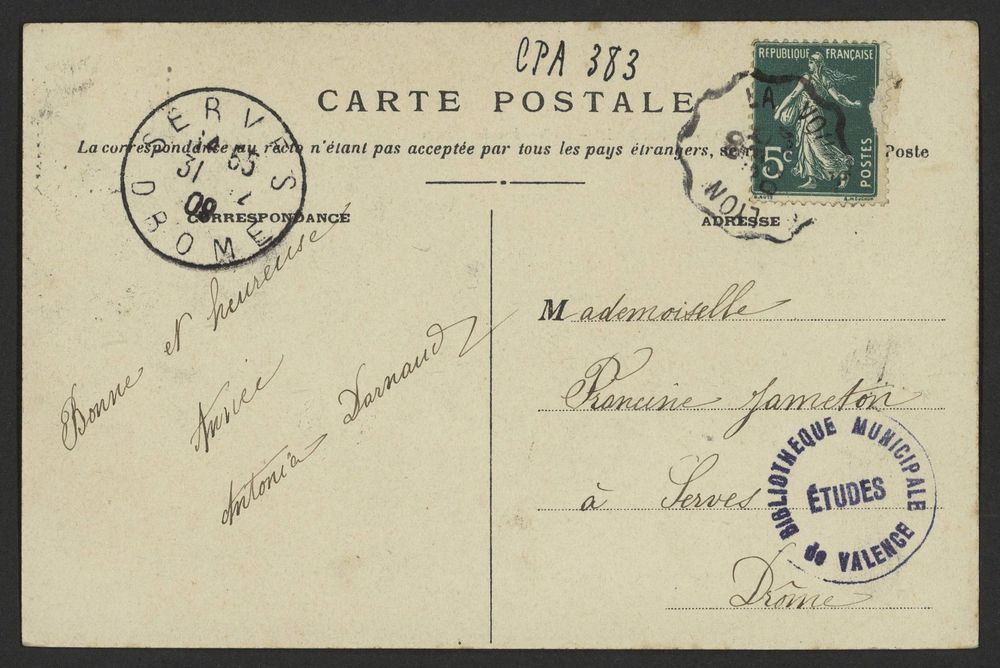 CPA 383
CARTE POSTALE
La correspondance au recto n'étant pas acceptée par tous les pays étrangers, Poste
REPUBLIQUE FRANÇAISE
5c
POSTES
LYON
LA VOU
SERVES
DROME
31
09
CORRESPONDANCE
Bonne et heureuse
Année
Antonia Darnaud
ADRESSE
Mademoiselle
Francine Jameton
à Serves
Drôme
BIBLIOTHEQUE MUNICIPALE
ÉTUDES
de VALENCE